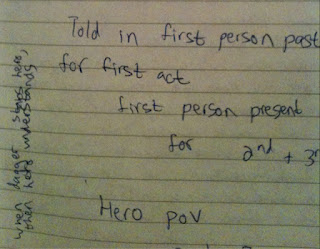 Told in first person past
for first act
first person present
for 2nd + 3r
Hero pov
when dagger stabs hero,
then hero understands